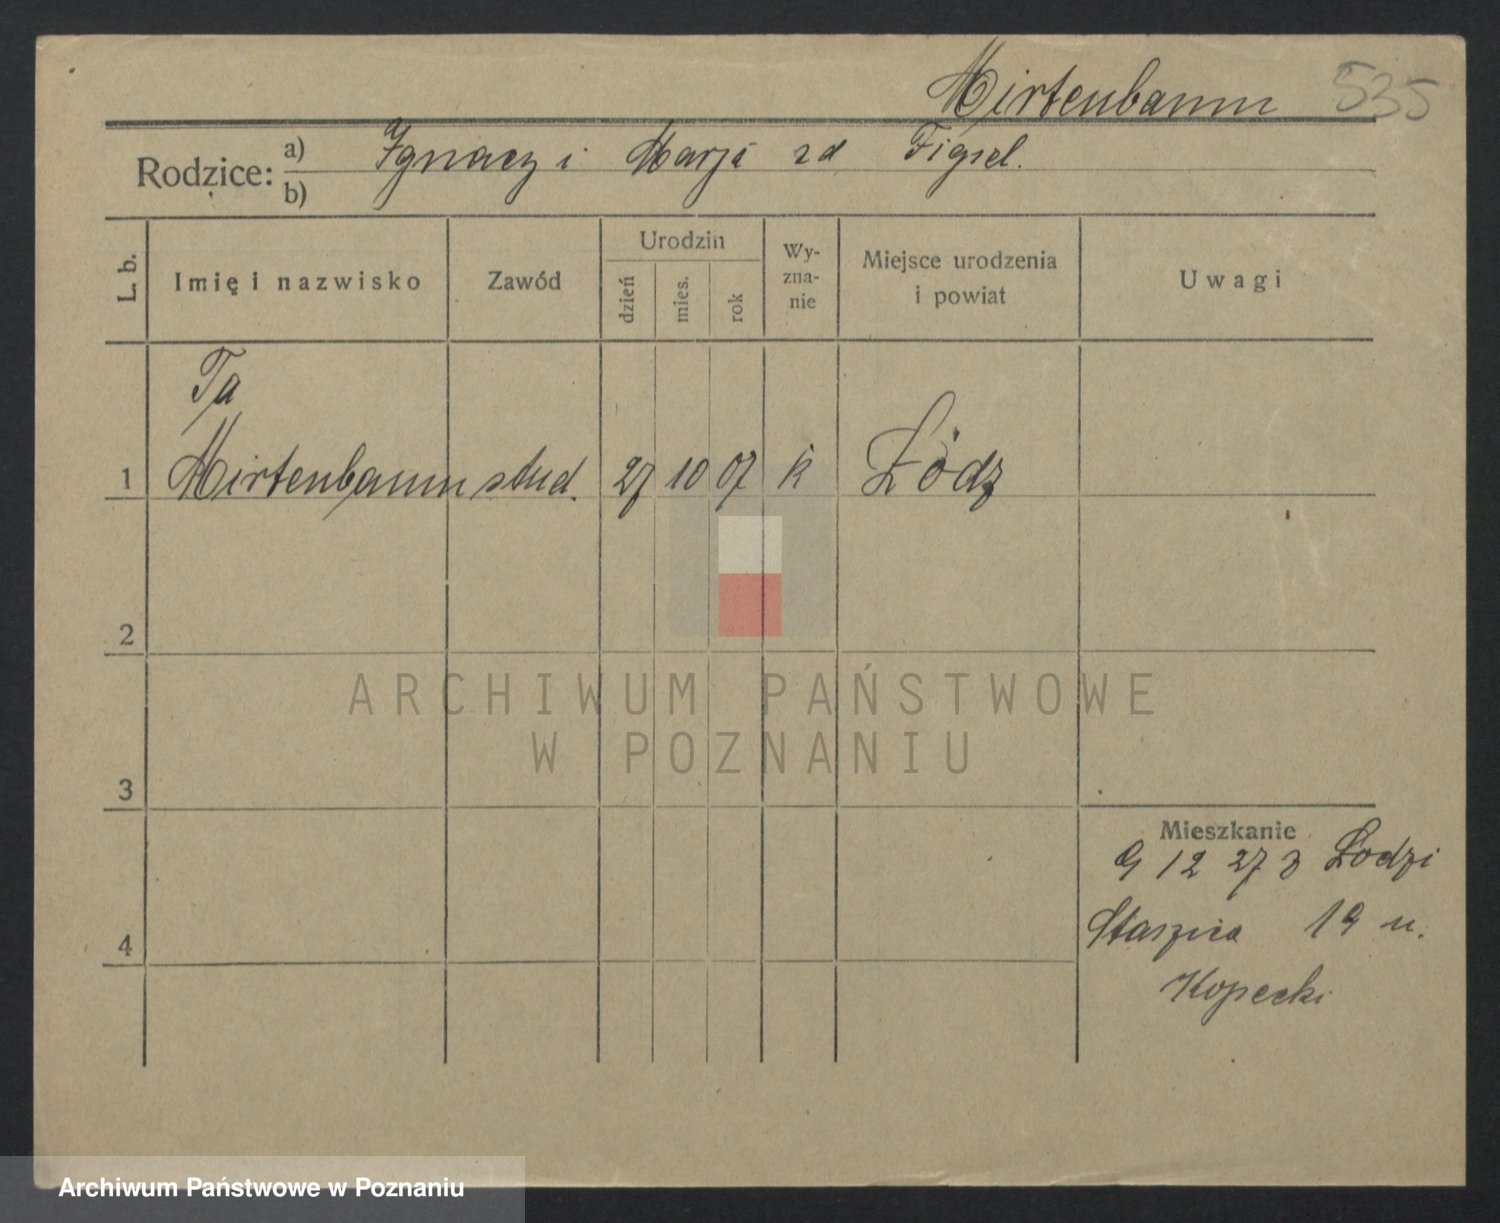 Mirtenbaum 535
Rodzice: a) Ignacy i Marja zd Figiel.
b)
L. b. Imię i nazwisko Zawód Urodzin dzień mies. rok Wy-zna-nie Miejsce urodzenia i powiat Uwagi
Ta
1 Mirtenbaum stud. 27 10 07 k Łódz
2
3
4
Mieszkanie
9 12 27 z Łodzi
Staszica 19 u.
Kopecki
ARCHIWUM PAŃSTWOWE
W POZNANIU
Archiwum Państwowe w Poznaniu